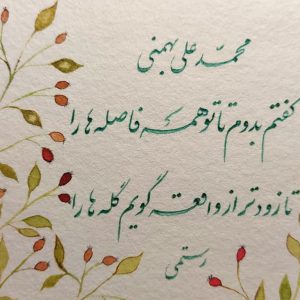 محمّد علی بهمنی
گفتم بدوم تا تو همه فاصله ها را
تا زودتر از واقعه گویم گله ها را
رستمی